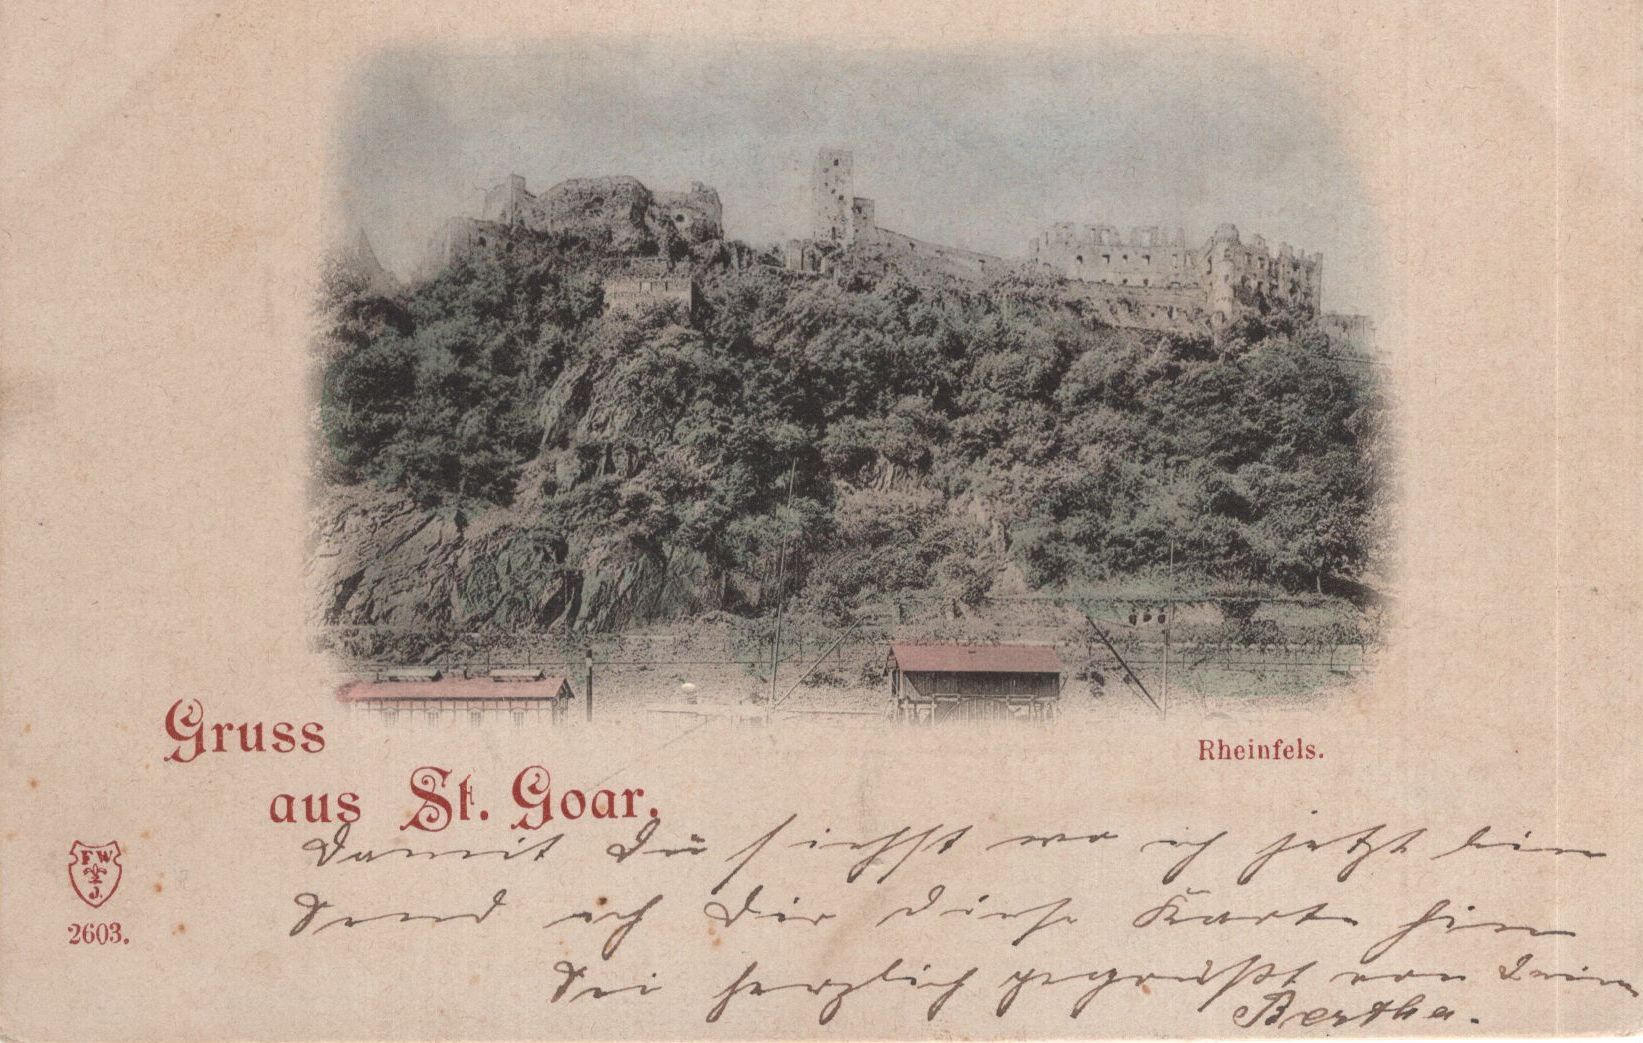 Gruss
aus St. Goar.
Rheinfels.
F W
J.
2603.
Damit Du siehst wo ich jetzt bin
Send ich Dir diese Karte hin
Sei herzlich gegrüßt von Deiner
Bertha.